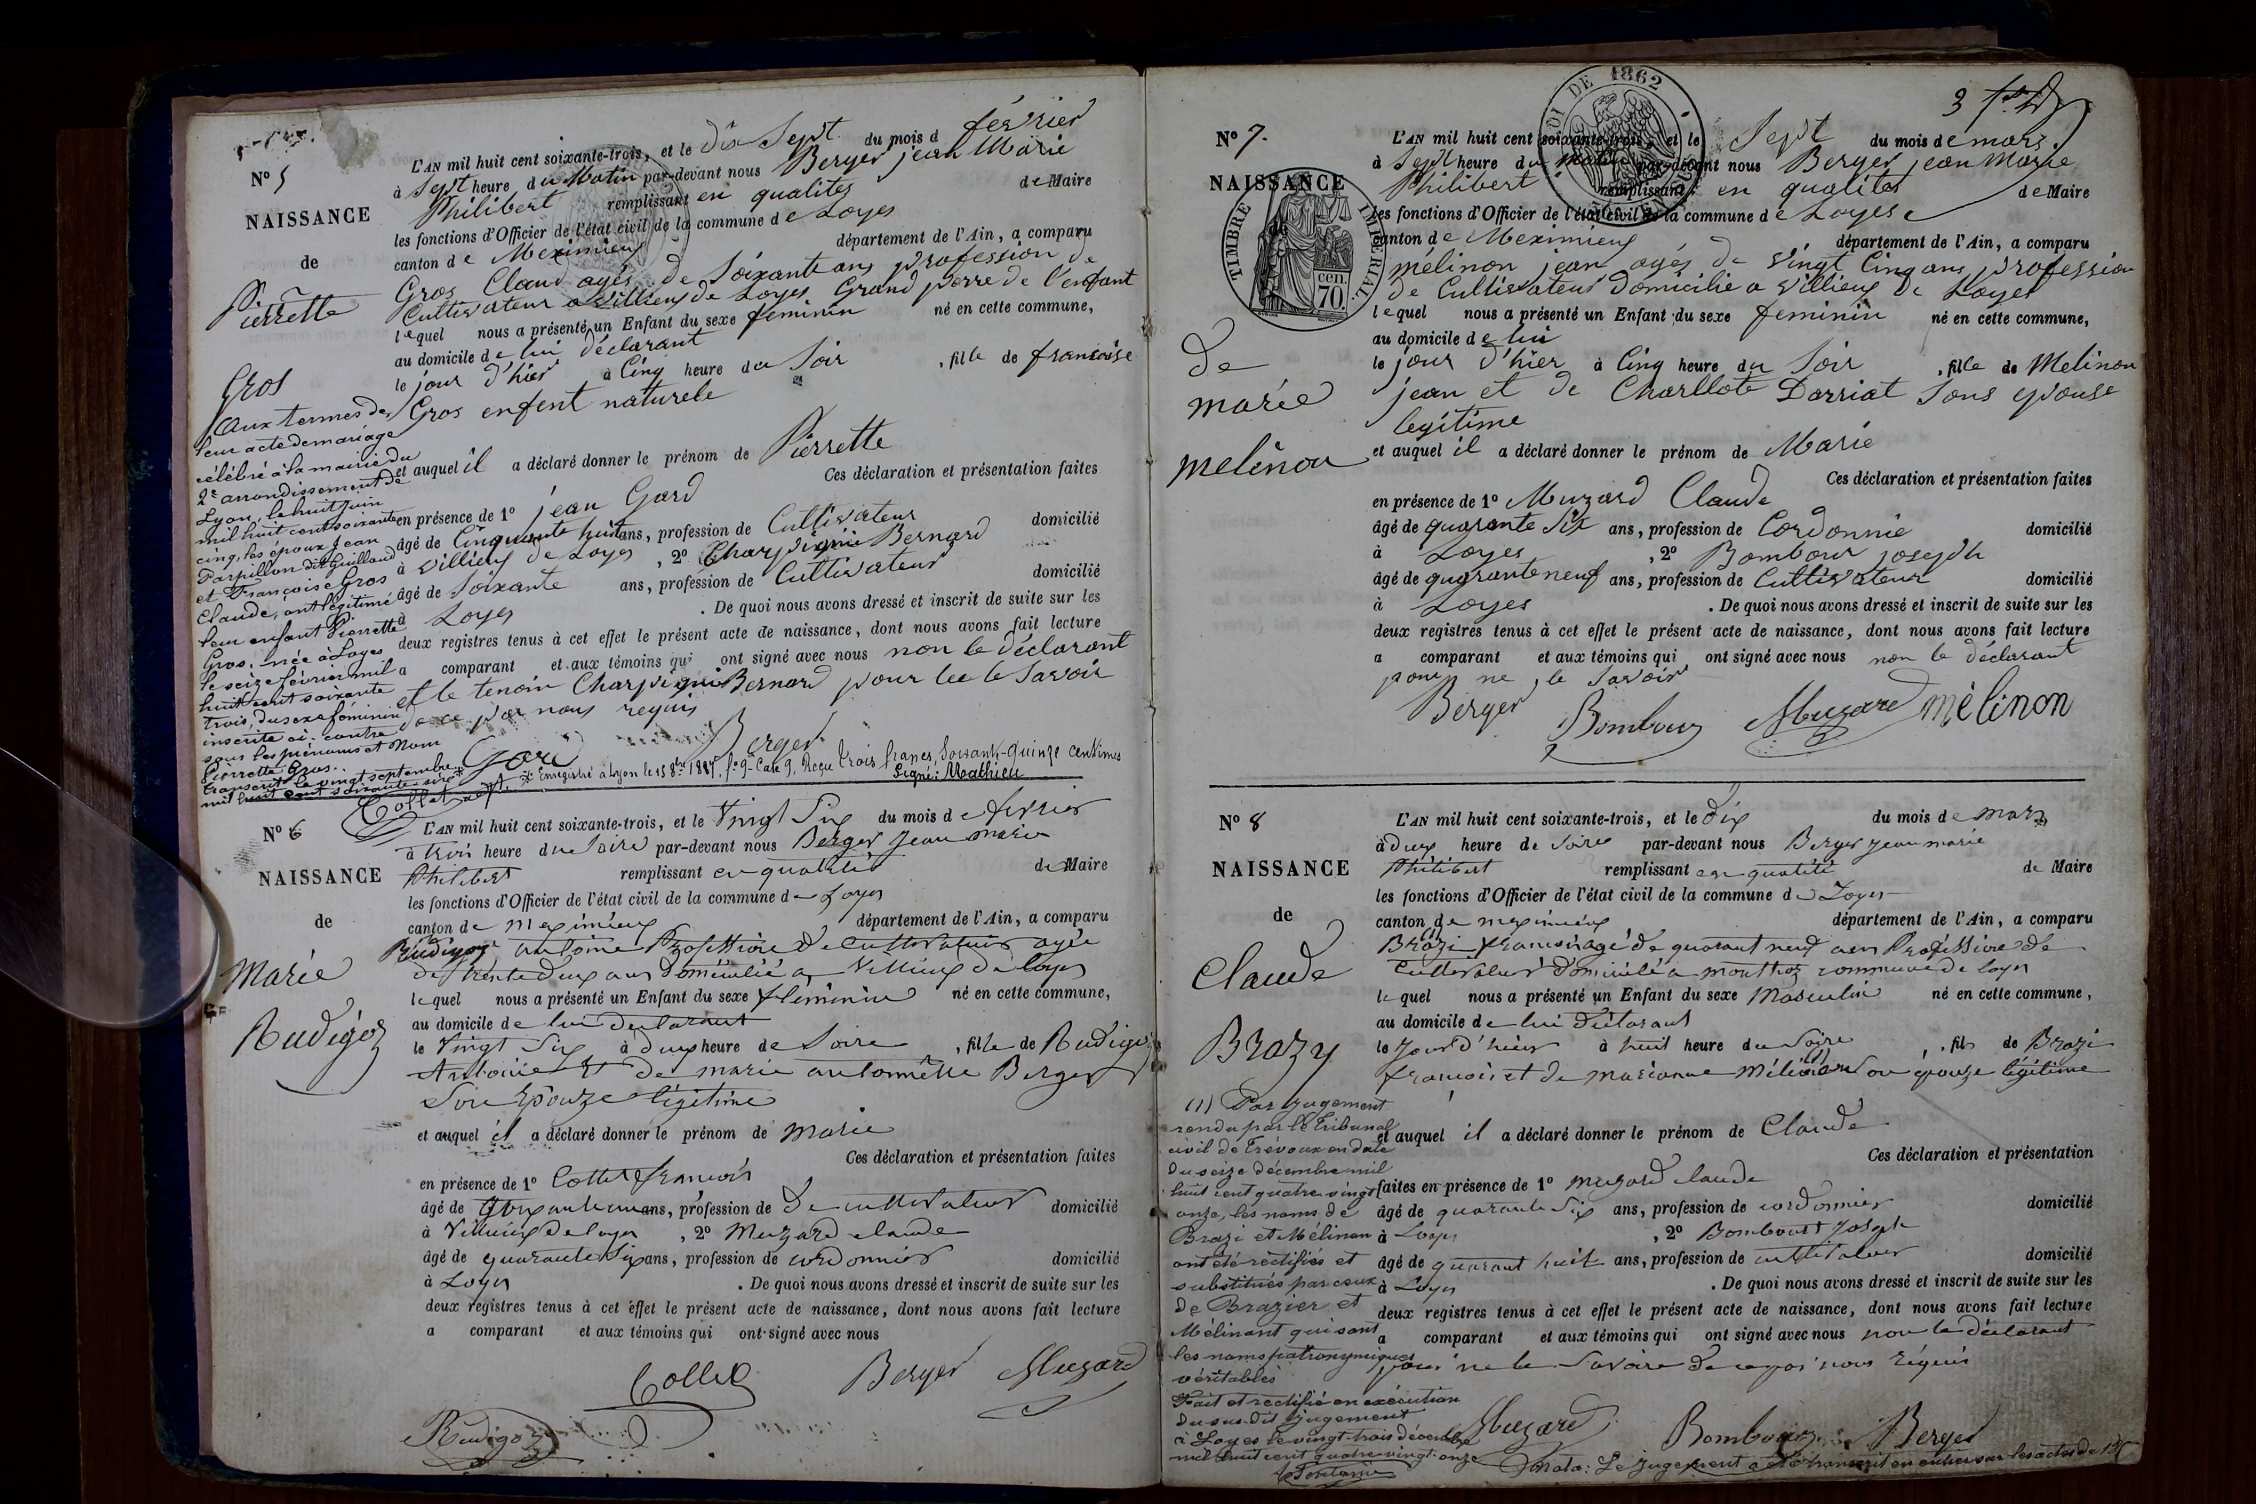 N° 5
NAISSANCE
de
Pierrette
Gros
L'AN mil huit cent soixante-trois, et le dix Sept du mois d février
à Sept heure du Matin par-devant nous Berger jean Marie
Philibert remplissant en qualites de Maire
les fonctions d'Officier de l'état civil de la commune de Loyes
canton de Meximieux département de l'Ain, a comparu
Gros Claud agés de Soixante ans profession de
Cultivateur a Villieux de Loyes Grand perre de l'enfant
lequel nous a présenté un Enfant du sexe feminin né en cette commune,
au domicile de lui déclarant
le jour d'hier à Cinq heure du Soir , fille de francoise
Gros enfent naturele
et auquel il a déclaré donner le prénom de Pierrette
Ces déclaration et présentation faites
en présence de 1° jean Gard
âgé de Cinquante huit ans, profession de Cultivateur domicilié
à Villieux de Loyes , 2° Bernard
âgé de Soixante ans, profession de Cultivateur domicilié
à Loyes . De quoi nous avons dressé et inscrit de suite sur les
deux registres tenus à cet effet le présent acte de naissance, dont nous avons fait lecture
a comparant et aux témoins qui ont signé avec nous non le déclarant
et le temoin Bernard pour le Savoir
de ce par nous requis
Gard Berger
Aux termes de
leur acte de mariage
célébré à la mairie du
2e arrondissement de
Lyon, le huit Juin
mil huit cent soixante
cinq, les époux Jean
Parpillon dit Guilland
et Françoise Gros
Claude, ont légitimé
leur enfant Pierrette
Gros, née à Loyes
le seize février mil
huit cent soixante
trois, du sexe féminin
inscrite ci-contre
sous les prénoms et nom
Pierrette Gros.
Transcrit le vingt septembre
mil huit cent soixante
※ Enregistré à Lyon le 15 8bre 1887, f° 9 Case 9. Reçu trois francs, Soixante-Quinze centimes
Signé: Mathieu
N° 6
NAISSANCE
de
Marie
Rudigoz
L'AN mil huit cent soixante-trois, et le Vingt Six du mois de fevrier
à trois heure du Soire par-devant nous Berger Jean marie
Philibert remplissant en qualité de Maire
les fonctions d'Officier de l'état civil de la commune de Loyes
canton de Meximieux département de l'Ain, a comparu
Rudigoz antoine Profession de cultivateur agée
de trente deux ans domicilié a Villieux de loyes
lequel nous a présenté un Enfant du sexe féminin né en cette commune,
au domicile de lui declarant
le Vingt Six à deux heure de Soire , fille de Rudigoz
Antoine Et de marie antoinette Berger
Son Epouze légitime
et auquel il a déclaré donner le prénom de Marie
Ces déclaration et présentation faites
en présence de 1° Collet francois
âgé de ans, profession de De cultivateur domicilié
à Villieux de loyes , 2° Muzard claude
âgé de quarante Six ans, profession de cordonnier domicilié
à Loyes . De quoi nous avons dressé et inscrit de suite sur les
deux registres tenus à cet effet le présent acte de naissance, dont nous avons fait lecture
a comparant et aux témoins qui ont signé avec nous
Collet Berger Muzard
Rudigoz
3
LOI DE 1862
TIMBRE IMPÉRIAL
70 cen.
N° 7.
NAISSANCE
de
marie
melinon
L'AN mil huit cent soixante-trois, et le Sept du mois de mars
à Sept heure du matin par-devant nous Berger jean Marie
Philibert remplissant en qualites de Maire
les fonctions d'Officier de l'état civil de la commune de Loyes
canton de Meximieux département de l'Ain, a comparu
mélinon jean agés de vingt Cinq ans profession
de Cultivateur Domicilié a Villieux de Loyes
lequel nous a présenté un Enfant du sexe feminin né en cette commune,
au domicile de lui
le jour d'hier à Cinq heure du Soir , fille de Melinon
jean et de Charllote Darriat Sons epouse
legitime
et auquel il a déclaré donner le prénom de Marie
Ces déclaration et présentation faites
en présence de 1° Muzard Claude
âgé de quarante Six ans, profession de Cordonnie domicilié
à Loyes , 2° Bombour joseph
âgé de quarante neuf ans, profession de Cultivateur domicilié
à Loyes . De quoi nous avons dressé et inscrit de suite sur les
deux registres tenus à cet effet le présent acte de naissance, dont nous avons fait lecture
a comparant et aux témoins qui ont signé avec nous non le déclarant
pour ne le Savoir
Berger Bombour Muzard mélinon
N° 8
NAISSANCE
de
Claude
Brazy
L'AN mil huit cent soixante-trois, et le dix du mois de mars
à Deux heure de Soire par-devant nous Berger jean marie
Philibert remplissant en qualité de Maire
les fonctions d'Officier de l'état civil de la commune de Loyes
canton de meximieux département de l'Ain, a comparu
Brazi francois agé de quarant neuf ans Profession de
Cultivateur domicilé a monthoz commune de loyes
lequel nous a présenté un Enfant du sexe Masculin né en cette commune,
au domicile de lui Déclarant
le jour d'hier à huit heure du Soire , fils de Brazi
francois et de marianne Mélinon Son epouze légitime
et auquel il a déclaré donner le prénom de Claude
Ces déclaration et présentation
faites en présence de 1° muzard claude
âgé de quarante Six ans, profession de cordonnier domicilié
à Loyes , 2° Bombourt Joseph
âgé de quarant huit ans, profession de cultivateur domicilié
à Loyes . De quoi nous avons dressé et inscrit de suite sur les
deux registres tenus à cet effet le présent acte de naissance, dont nous avons fait lecture
a comparant et aux témoins qui ont signé avec nous non le déclarant
pour ne le Savoire de ce par nous réquis
Muzard Bombour Berger
(1) Par jugement
rendu par le tribunal
civil de Trévoux en date
du seize décembre mil
huit cent quatre vingt
onze, les noms de
Brazi et Mélinon
ont été rectifiés et
substitués par ceux
de Brazier et
Mélinant qui sont
les noms patronymiques
véritables
Fait et rectifié en exécution
du susdit jugement
à Loyes le vingt-trois décembre
mil huit cent quatre-vingt-onze
Nota: Le jugement a été transcrit en entier sur les actes de